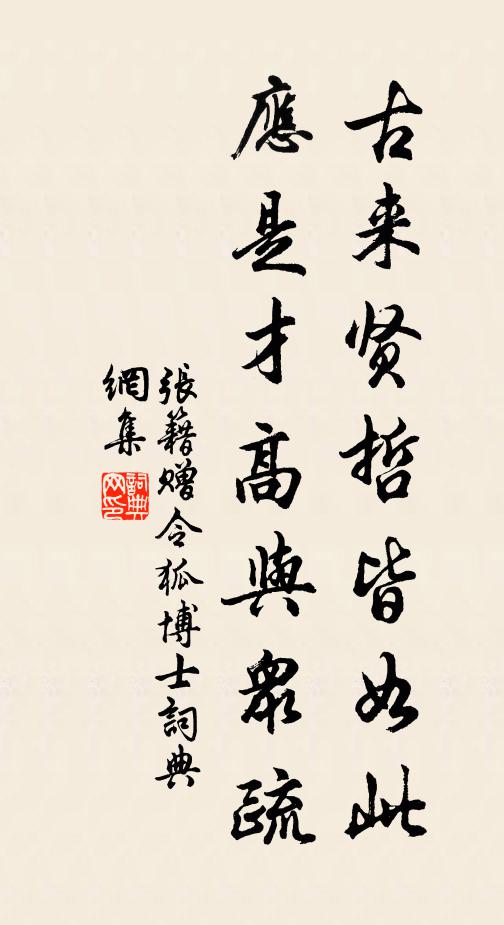 古来贤哲皆如此
應是才高與眾疏
張籍赠令狐博士詞典
網集
詞典
网印